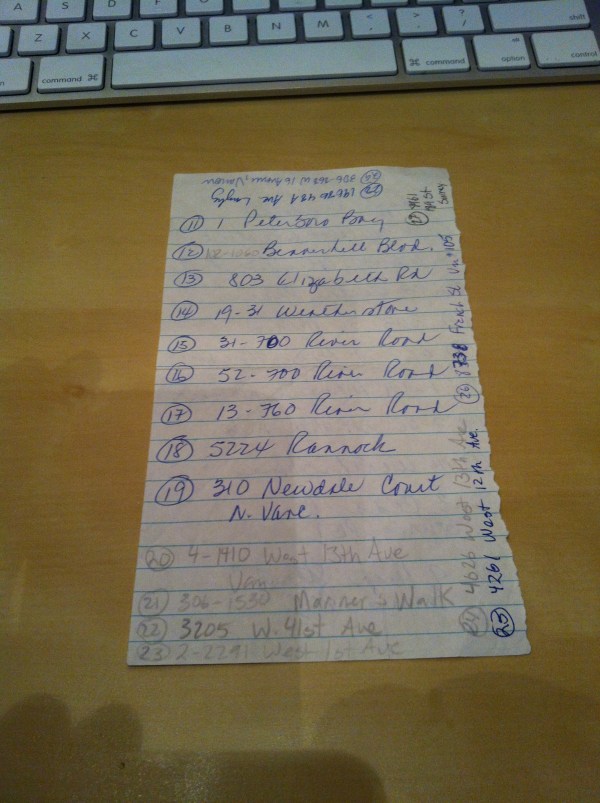 A S D
Z X C V B N M < , > . ? / shift
command ⌘ ⌘ command option control
⑪ 1 Peterboro Bay
⑫ Bennerhill Blvd.
⑬ 803 Elizabeth Rd
⑭ 19-31 Weatherstone
⑮ 31-700 River Road
⑯ 52-700 River Road
⑰ 13-760 River Road
⑱ 5224 Rannock
⑲ 310 Newdale Court
N. Vanc.
⑳ 4-1910 West 13th Ave
Vanc
(21) 306-1530 Mariner's Walk
(22) 3205 W. 41st Ave
(23) 2-2291 West 1st Ave
(24) 4626 West 13th Ave
(25) 4261 West 12th Ave.
(26) 8738 French St Un #105
Surrey
Ave Langley